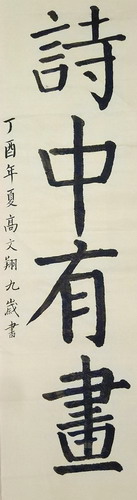 詩中有畫
丁酉年夏高文翔九歲書